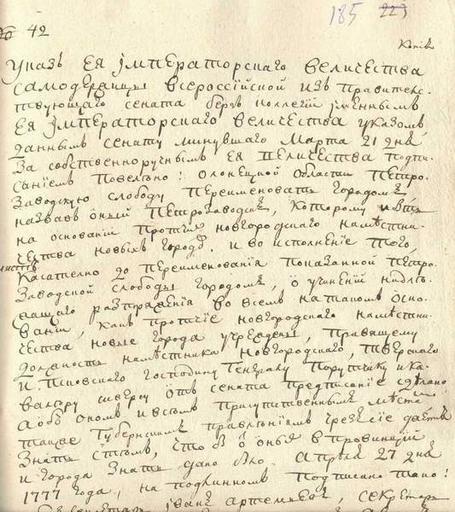 185 223
№ 42
Копiя
Указъ Ея Iмператорскаго величества
самодержицы всероссiйской изъ правителс-
твующаго сената бергъ коллегiи iменнымъ
Ея Iмператорскаго величества указомъ,
даннымъ сенату минувшаго Марта 21 дня
За собственноручнымъ Ея величества подпи-
санiемъ повелено: Олонецкой Области Петро-
заводскую слободу переименовать городомъ
назвавъ оный Петрозаводскъ, которому быть
на основанiи протчихъ новгородскаго намѣстни-
чества новыхъ городовъ. и во исполненiе того,
касателно до переименованiя показанной Петро-
Заводской слободы городомъ, о учиненiи надле-
жащаго разпоряженiя во всемъ на такомъ осно-
ванiи, какъ протчiе новгородскаго намѣстни-
чества новые города учреждены, правящему
должность намѣстника новгородскаго, тверскаго
и Псковскаго господину Генералу Порутчику и ка-
валеру сиверсу отъ сената предписанiе сдѣлано
а объ ономъ и всѣмъ присутственнымъ мѣстамъ
также Губернскимъ правленiямъ чрезъ сiе даетца
знать стѣмъ, чтобъ о ономъ впровинцiи
и города знать дано было. Апреля 27 дня
1777 года, на подлинномъ подписано тако:
Iванъ Артемьевъ, секретарь